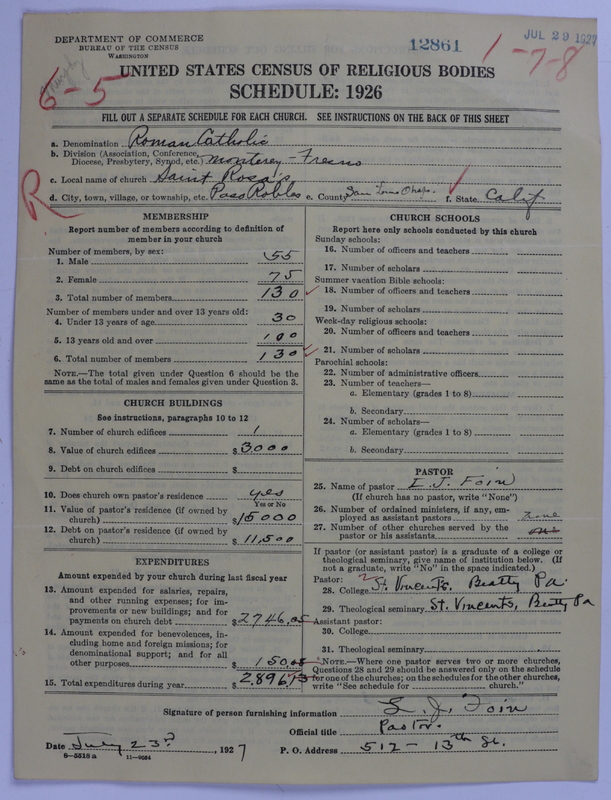 DEPARTMENT OF COMMERCE
BUREAU OF THE CENSUS
WASHINGTON
12861
JUL 29 1927
1-7-8
6-5
UNITED STATES CENSUS OF RELIGIOUS BODIES
SCHEDULE: 1926
FILL OUT A SEPARATE SCHEDULE FOR EACH CHURCH. SEE INSTRUCTIONS ON THE BACK OF THIS SHEET
a. Denomination Roman Catholic
b. Division (Association, Conference, Diocese, Presbytery, Synod, etc.) Monterey-Fresno
c. Local name of church Saint Rosa's
R
d. City, town, village, or township, etc. Paso Robles e. County San Louis Obispo f. State Calif
MEMBERSHIP
Report number of members according to definition of
member in your church
Number of members, by sex:
1. Male 55
2. Female 75
3. Total number of members 130
Number of members under and over 13 years old:
4. Under 13 years of age 30
5. 13 years old and over 100
6. Total number of members 130
NOTE.—The total given under Question 6 should be
same as the total of males and females given under Question 3.
CHURCH BUILDINGS
See instructions, paragraphs 10 to 12
7. Number of church edifices 1
8. Value of church edifices $ 3000
9. Debt on church edifices $
10. Does church own pastor's residence yes
Yes or No
11. Value of pastor's residence (if owned by
church) $ 15000
12. Debt on pastor's residence (if owned by
church) $ 11,500
EXPENDITURES
Amount expended by your church during last fiscal year
13. Amount expended for salaries, repairs,
and other running expenses; for im-
provements or new buildings; and for
payments on church debt $ 2746.05
14. Amount expended for benevolences, in-
cluding home and foreign missions; for
denominational support; and for all
other purposes $ 150.08
15. Total expenditures during year $ 2896.13
CHURCH SCHOOLS
Report here only schools conducted by this church
Sunday schools:
16. Number of officers and teachers
17. Number of scholars
Summer vacation Bible schools:
18. Number of officers and teachers
19. Number of scholars
Week-day religious schools:
20. Number of officers and teachers
21. Number of scholars
Parochial schools:
22. Number of administrative officers
23. Number of teachers—
a. Elementary (grades 1 to 8)
b. Secondary
24. Number of scholars—
a. Elementary (grades 1 to 8)
b. Secondary
PASTOR
25. Name of pastor L. J. Foin
(If church has no pastor, write "None")
26. Number of ordained ministers, if any, em-
ployed as assistant pastors none
27. Number of other churches served by the
pastor or his assistants one
If pastor (or assistant pastor) is a graduate of a college or
theological seminary, give name of institution below. (If
not a graduate, write "No" in the space indicated.)
Pastor:
28. College St. Vincents. Beatty Pa.
29. Theological seminary St. Vincents, Beatty Pa
Assistant pastor:
30. College
31. Theological seminary
NOTE.—Where one pastor serves two or more churches,
Questions 28 and 29 should be answered only on the schedule
for one of the churches; on the schedules for the other churches,
write "See schedule for church."
Signature of person furnishing information L. J. Foin
Official title Pastor.
Date July 23rd, 1927 P. O. Address 512-13th St.
8-5518 a 11-9084